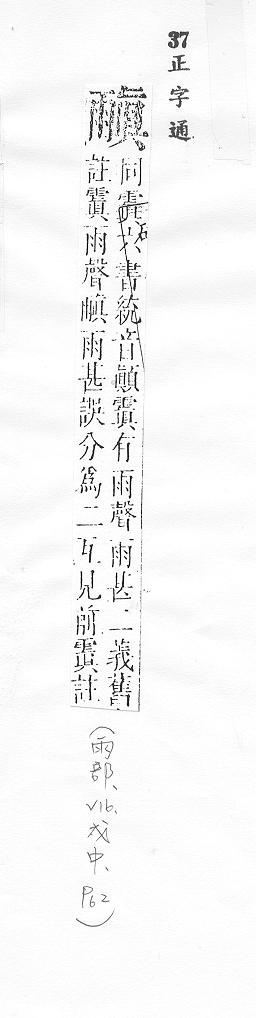 37正字通
䨶
同霣六書統音顚霣有雨聲雨甚二義舊
註霣雨聲䨶雨甚誤分爲二互見前霣註
(雨部、V16、戌中、P62)